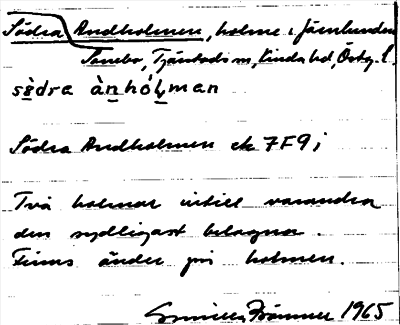 Södra Andholmen, holme i Järnlunden
Sonebo, Tjärstads sn, Kinda hd, Östg. l.
sö̀dra ànhólman
Södra Andholmen ek 7F9i
Två holmar intill varandra
den sydligast belägna.
Finns änder på holmen.
Främmer 1965